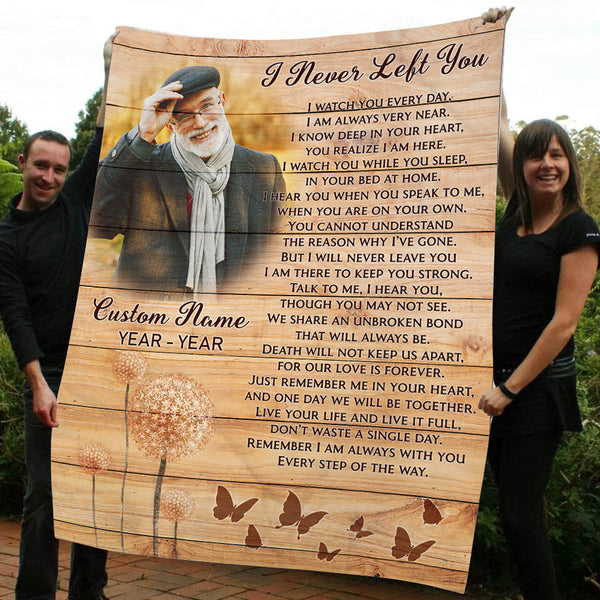 I Never Left You
I WATCH YOU EVERY DAY.
I AM ALWAYS VERY NEAR.
I KNOW DEEP IN YOUR HEART,
YOU REALIZE I AM HERE.
I WATCH YOU WHILE YOU SLEEP,
IN YOUR BED AT HOME.
I HEAR YOU WHEN YOU SPEAK TO ME,
WHEN YOU ARE ON YOUR OWN.
YOU CANNOT UNDERSTAND
THE REASON WHY I'VE GONE.
BUT I WILL NEVER LEAVE YOU
I AM THERE TO KEEP YOU STRONG.
TALK TO ME, I HEAR YOU,
THOUGH YOU MAY NOT SEE.
WE SHARE AN UNBROKEN BOND
THAT WILL ALWAYS BE.
DEATH WILL NOT KEEP US APART,
FOR OUR LOVE IS FOREVER.
JUST REMEMBER ME IN YOUR HEART,
AND ONE DAY WE WILL BE TOGETHER.
LIVE YOUR LIFE AND LIVE IT FULL,
DON'T WASTE A SINGLE DAY.
REMEMBER I AM ALWAYS WITH YOU
EVERY STEP OF THE WAY.
Custom Name
YEAR - YEAR